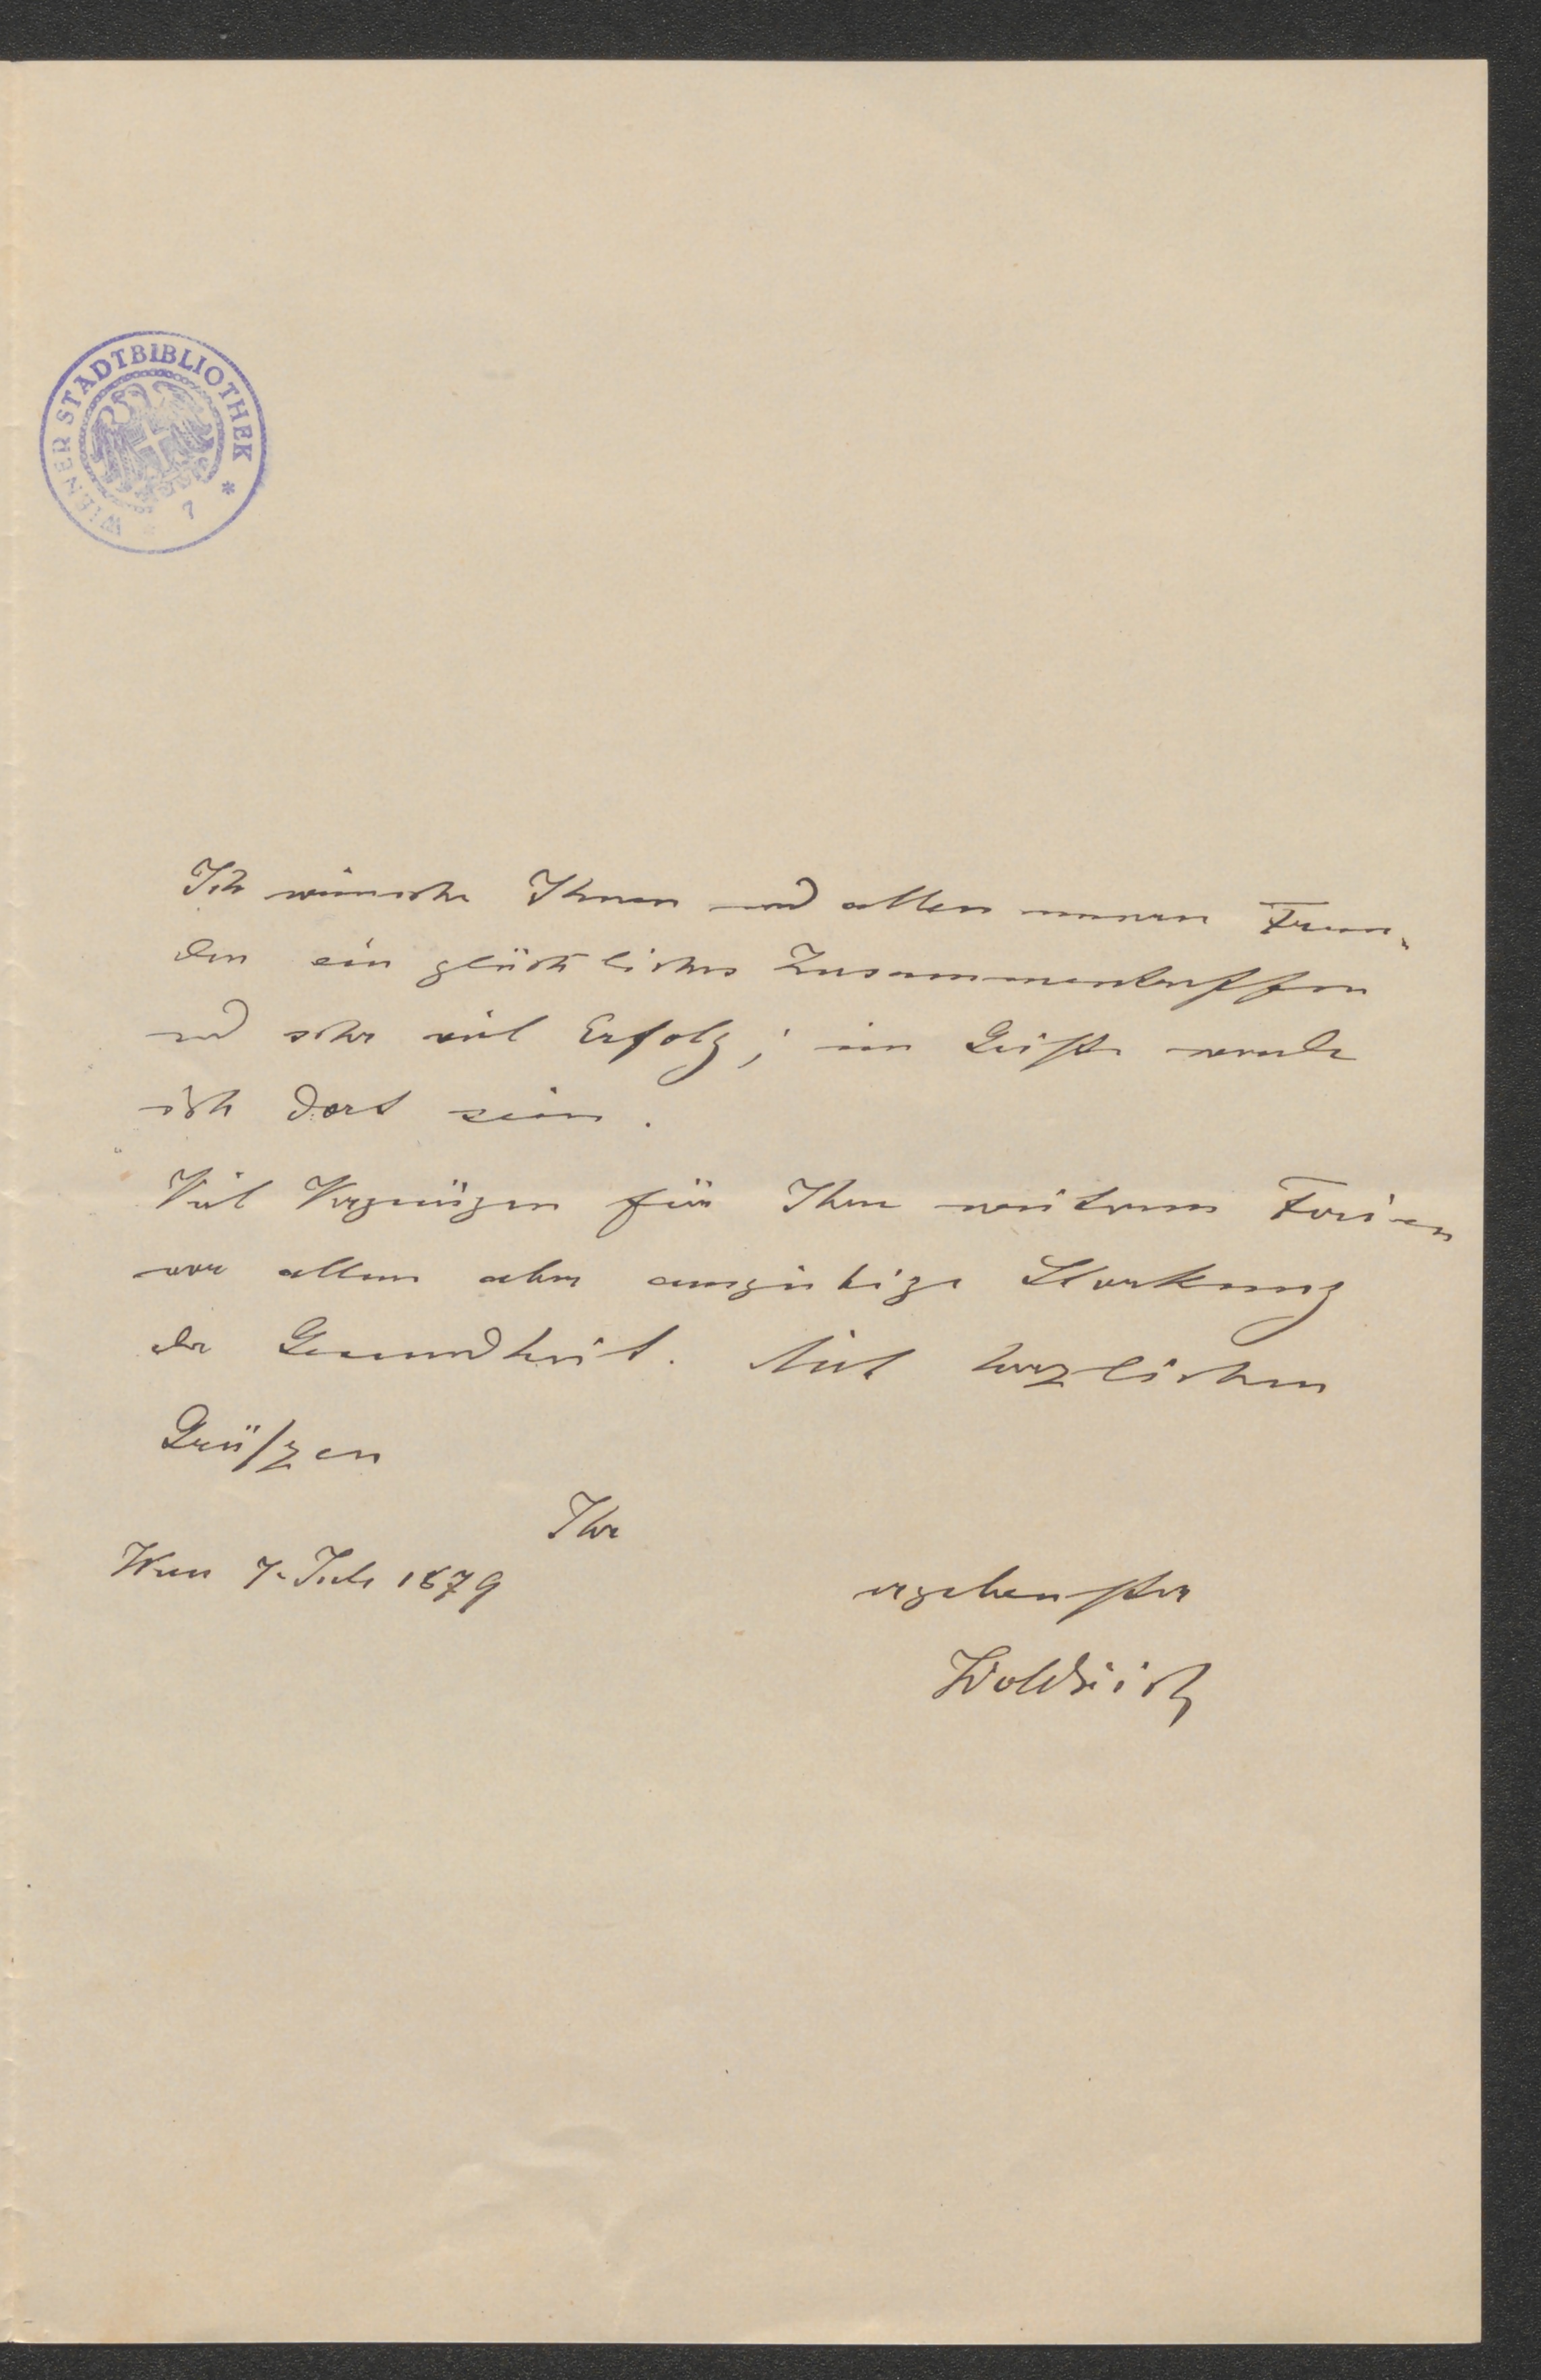 WIENER STADTBIBLIOTHEK * 7
Ich wünsche Ihnen und allen meinen Freun-
den ein glückliches Zusammentreffen
und sehr viel Erfolg; im Geiste werde
ich dort sein.
Viel Vergnügen für Ihre weiteren Ferien
vor allem aber ausgiebige Starkung
der Gesundheit. Mit herzlichen
Grüßen
Ihr
Wien 7. Juli 1879
ergebenster
Woldřich